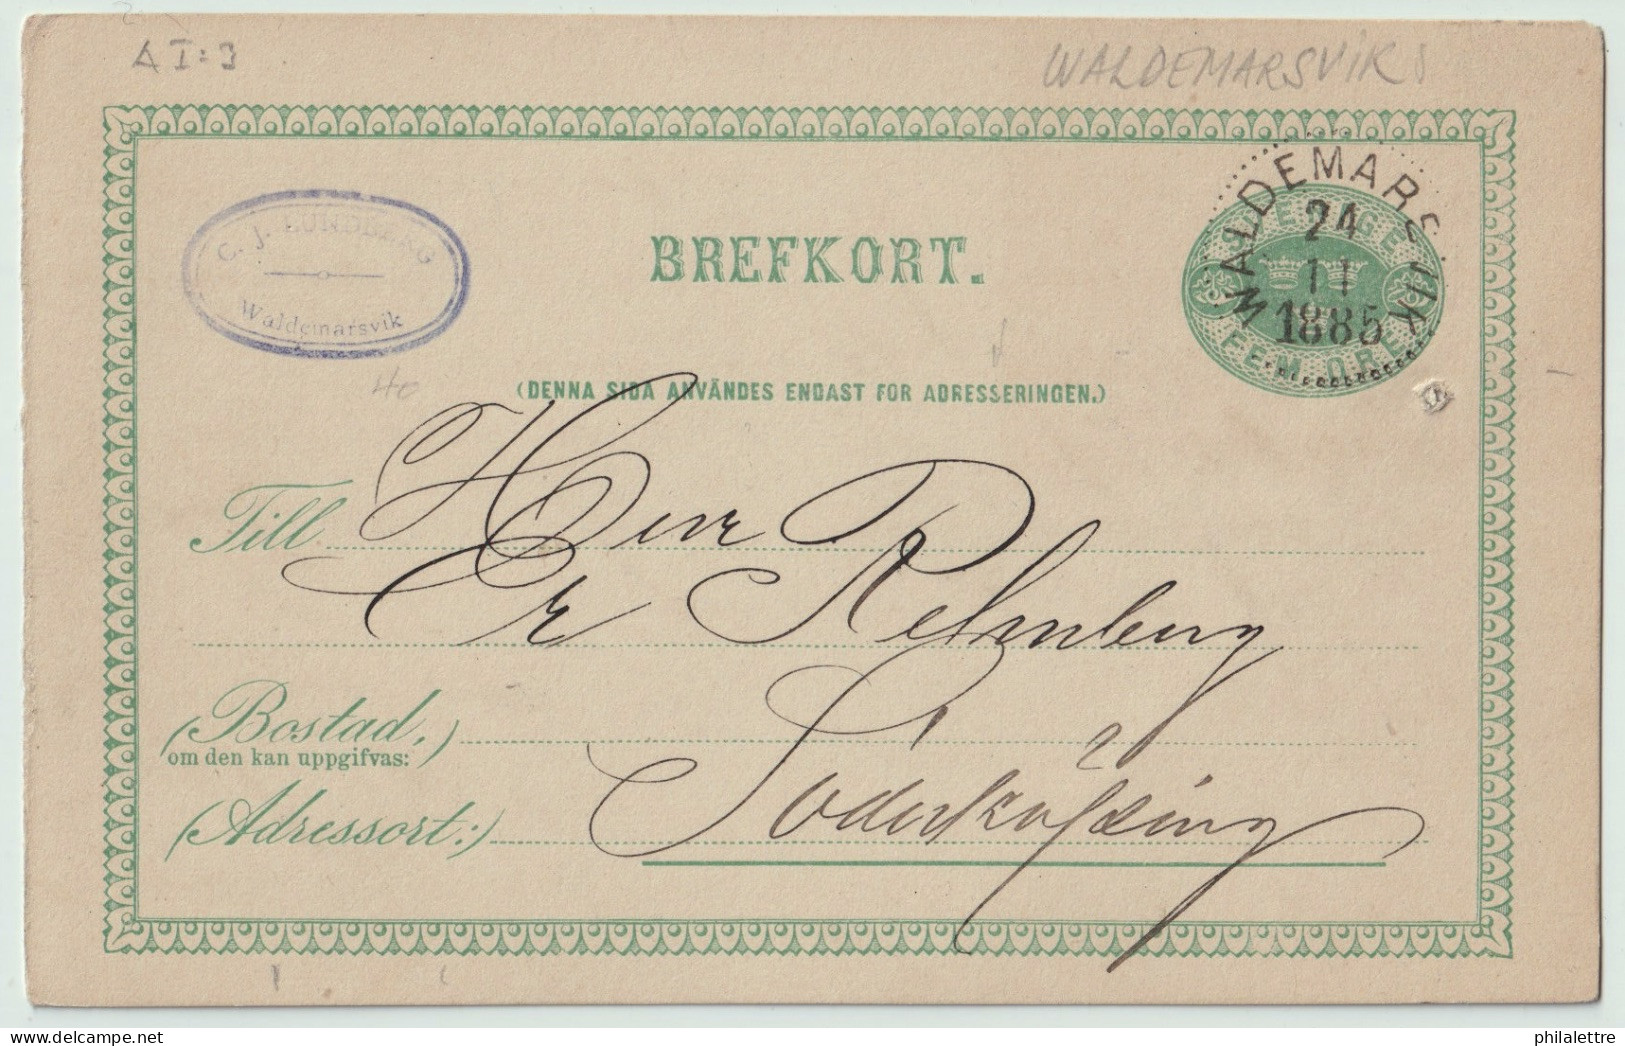 A I:3
WALDEMARSVIK
C. J. LUNDBERG
Waldemarsvik
BREFKORT.
WALDEMARSVIK
24
11
1885
SVERIGE
FEM ÖRE
(DENNA SIDA ANVÄNDES ENDAST FÖR ADRESSERINGEN.)
Till Herr
Er Rehnberg
(Bostad,
om den kan uppgifvas:)
(Adressort:) Söderköping
philalettre